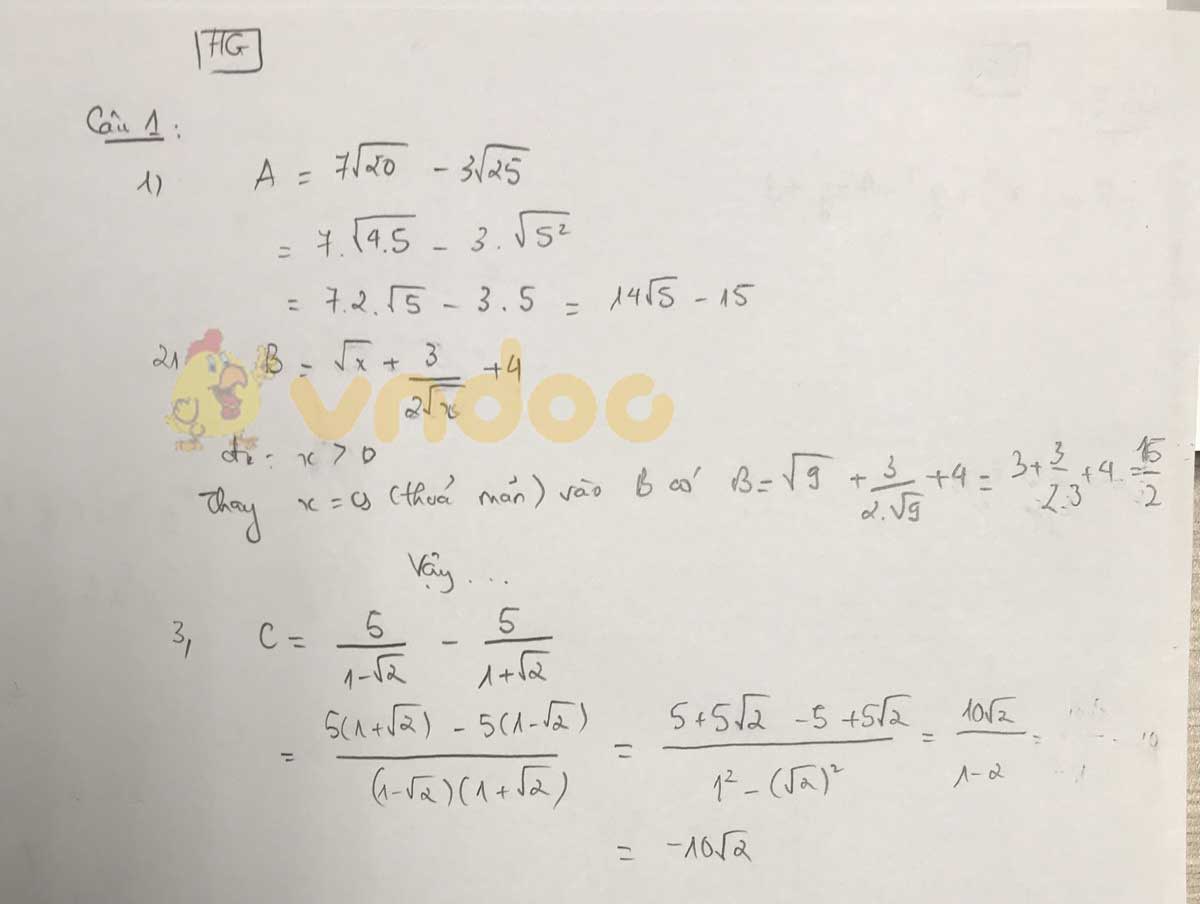 HG
Câu 1 :
1) A = 7√20 - 3√25
= 7.√4.5 - 3.√5²
= 7.2.√5 - 3.5 = 14√5 - 15
2, B = √x + 3/2√x + 4
vndoc
đk: x > 0
Thay x = 9 (thoả mãn) vào B có B = √9 + 3/2.√9 + 4 = 3 + 3/2.3 + 4 = 15/2
Vậy ...
3, C = 5/1-√2 - 5/1+√2
= 5(1+√2) - 5(1-√2)/(1-√2)(1+√2) = 5+5√2 -5 +5√2/1² - (√2)² = 10√2/1-2 =
= -10√2